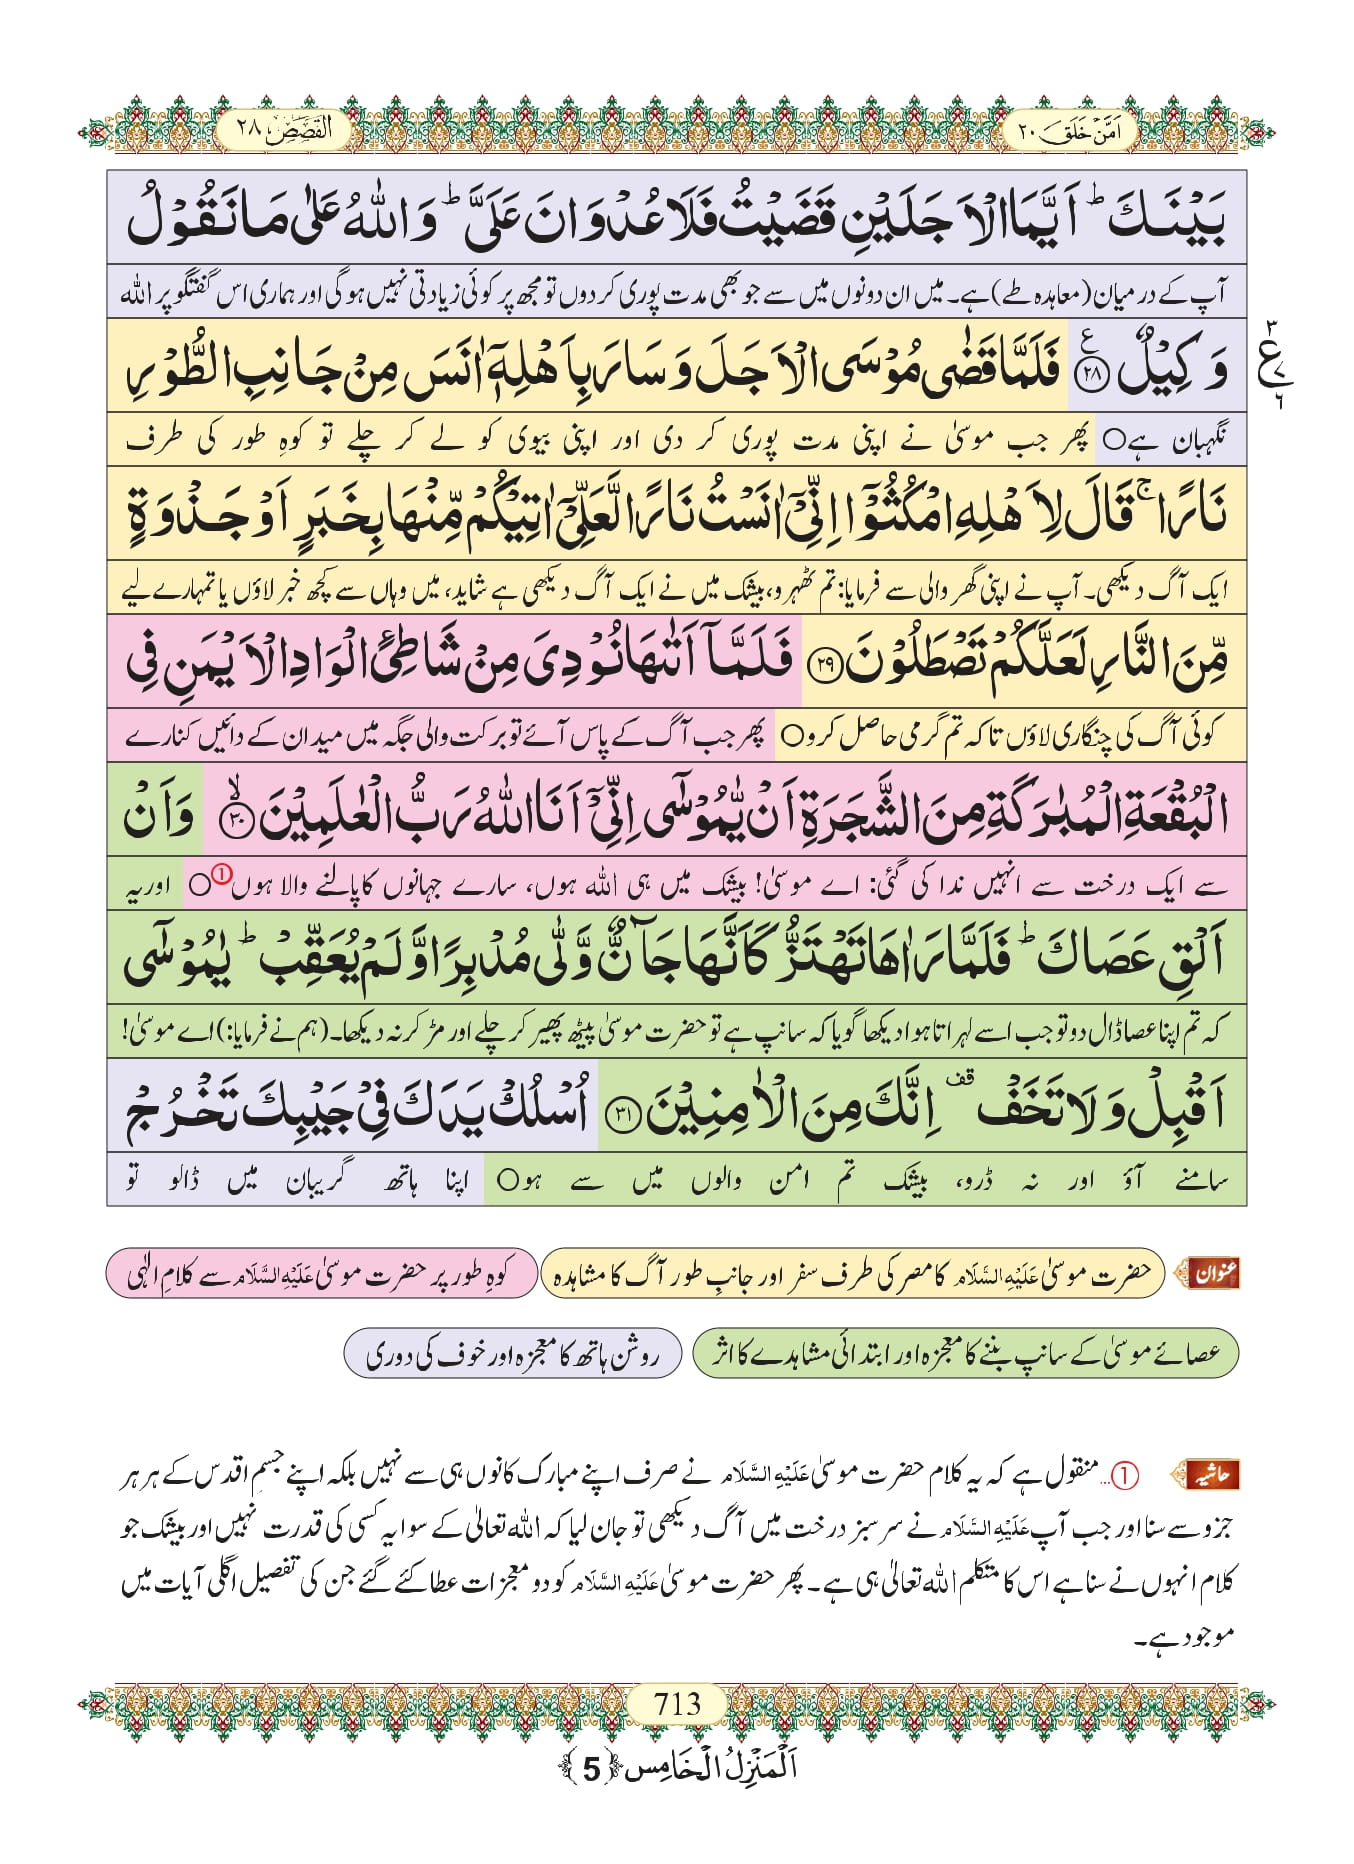 اَمَّنْ خَلَقَ ٢٠
القَصَصَ ٢٨
بَيْنَكَ ؕ اَيَّمَا الْاَجَلَيْنِ قَضَيْتُ فَلَا عُدْوَانَ عَلَيَّ ؕ وَاللّٰهُ عَلٰى مَا نَقُوْلُ
آپ کے درمیان (معاہدہ طے) ہے۔ میں ان دونوں میں سے جو بھی مدت پوری کردوں تو مجھ پر کوئی زیادتی نہیں ہوگی اور ہماری اس گفتگو پر اللہ
وَكِيْلٌ ﴿٢٨﴾ ع فَلَمَّا قَضٰى مُوْسَى الْاَجَلَ وَسَارَ بِاَهْلِهٖۤ اٰنَسَ مِنْ جَانِبِ الطُّوْرِ
٣ ع ٧ ٦
نگہبان ہے○ پھر جب موسیٰ نے اپنی مدت پوری کر دی اور اپنی بیوی کو لے کر چلے تو کوہِ طور کی طرف
نَارًا ۚ قَالَ لِاَهْلِهِ امْكُثُوْۤا اِنِّيْۤ اٰنَسْتُ نَارًا لَّعَلِّيْۤ اٰتِيْكُمْ مِّنْهَا بِخَبَرٍ اَوْ جَذْوَةٍ
ایک آگ دیکھی۔ آپ نے اپنی گھر والی سے فرمایا: تم ٹھہرو، بیشک میں نے ایک آگ دیکھی ہے شاید، میں وہاں سے کچھ خبر لاؤں یا تمہارے لیے
مِّنَ النَّارِ لَعَلَّكُمْ تَصْطَلُوْنَ ﴿٢٩﴾ فَلَمَّاۤ اَتٰىهَا نُوْدِيَ مِنْ شَاطِئِ الْوَادِ الْاَيْمَنِ فِي
کوئی آگ کی چنگاری لاؤں تاکہ تم گرمی حاصل کرو○ پھر جب آگ کے پاس آئے تو برکت والی جگہ میں میدان کے دائیں کنارے
الْبُقْعَةِ الْمُبٰرَكَةِ مِنَ الشَّجَرَةِ اَنْ يّٰمُوْسٰۤى اِنِّيْۤ اَنَا اللّٰهُ رَبُّ الْعٰلَمِيْنَ ۙ﴿٣٠﴾ وَاَنْ
سے ایک درخت سے انہیں ندا کی گئی: اے موسیٰ! بیشک میں ہی اللہ ہوں، سارے جہانوں کا پالنے والا ہوں①○ اور یہ
اَلْقِ عَصَاكَ ؕ فَلَمَّا رَاٰهَا تَهْتَزُّ كَاَنَّهَا جَآنٌّ وَّلّٰى مُدْبِرًا وَّلَمْ يُعَقِّبْ ؕ يٰمُوْسٰۤى
کہ تم اپنا عصا ڈال دو تو جب اسے لہراتا ہوا دیکھا گویا کہ سانپ ہے تو حضرت موسیٰ پیٹھ پھیر کر چلے اور مڑ کر نہ دیکھا۔ (ہم نے فرمایا:) اے موسیٰ!
اَقْبِلْ وَلَا تَخَفْ ۫ قف اِنَّكَ مِنَ الْاٰمِنِيْنَ ﴿٣١﴾ اُسْلُكْ يَدَكَ فِيْ جَيْبِكَ تَخْرُجْ
سامنے آؤ اور نہ ڈرو، بیشک تم امن والوں میں سے ہو○ اپنا ہاتھ گریبان میں ڈالو تو
عنوان حضرت موسیٰ عَلَيْهِ السَّلَام کا مصر کی طرف سفر اور جانبِ طور آگ کا مشاہدہ کوہِ طور پر حضرت موسیٰ عَلَيْهِ السَّلَام سے کلامِ الٰہی
عصائے موسیٰ کے سانپ بننے کا معجزہ اور ابتدائی مشاہدے کا اثر روشن ہاتھ کا معجزہ اور خوف کی دوری
حاشیہ ①...منقول ہے کہ یہ کلام حضرت موسیٰ عَلَيْهِ السَّلَام نے صرف اپنے مبارک کانوں ہی سے نہیں بلکہ اپنے جسمِ اقدس کے ہر ہر
جزو سے سنا اور جب آپ عَلَيْهِ السَّلَام نے سرسبز درخت میں آگ دیکھی تو جان لیا کہ اللہ تعالیٰ کے سوا یہ کسی کی قدرت نہیں اور بیشک جو
کلام انہوں نے سنا ہے اس کا متکلم اللہ تعالیٰ ہی ہے۔ پھر حضرت موسیٰ عَلَيْهِ السَّلَام کو دو معجزات عطا کئے گئے جن کی تفصیل اگلی آیات میں
موجود ہے۔
713
اَلْمَنْزِلُ الْخَامِس ﴿5﴾